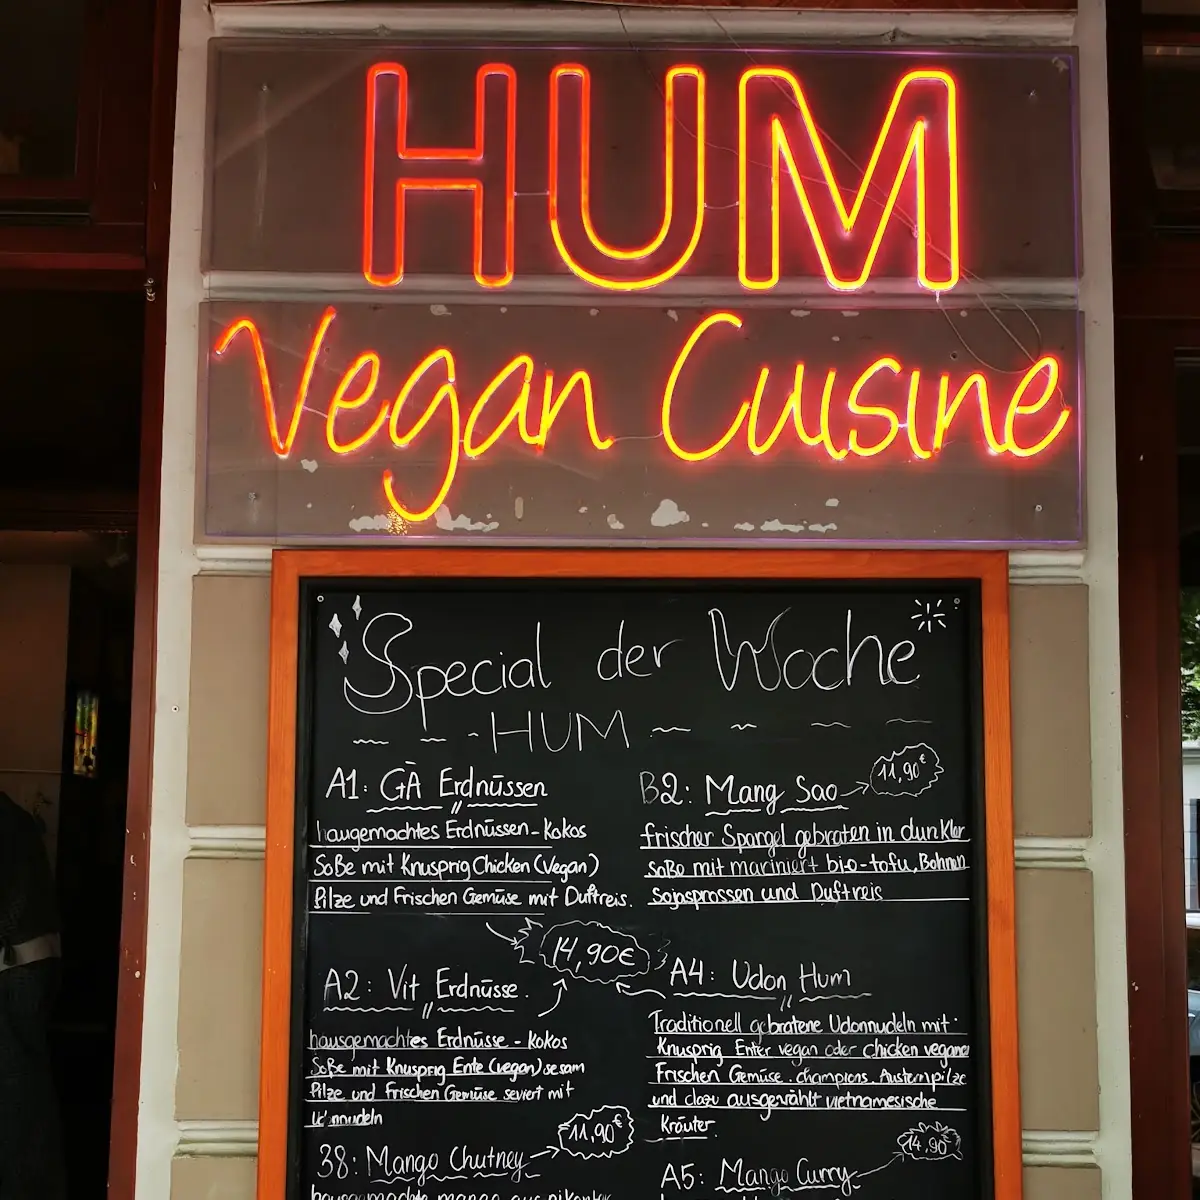 HUM
Vegan Cuisine
Special der Woche
HUM
A1: GÀ Erdnüssen
haugemachtes Erdnüssen-Kokos
Soße mit Knusprig Chicken (Vegan)
Pilze und Frischen Gemüse mit Duftreis.
14,90€
A2: Vit Erdnüsse.
hausgemachtes Erdnüsse - Kokos
Soße mit Knusprig Ente (vegan) sesam
Pilze und Frischen Gemüse seviert mit
38: Mango Chutney
11,90€
B2: Mang Sao
11,90€
frischer Spargel gebraten in dunkler
soße mit mariniert bio-tofu, Bohnen
Sojasprossen und Duftreis
A4: Udon Hum
Traditionell gebratene Udonnudeln mit
Knusprig Enter vegan oder chicken vegane
Frischen Gemüse. champions. Austernpilze
und dazu ausgewählt vietnamesische
Kräuter.
A5: Mango Curry
14,90€